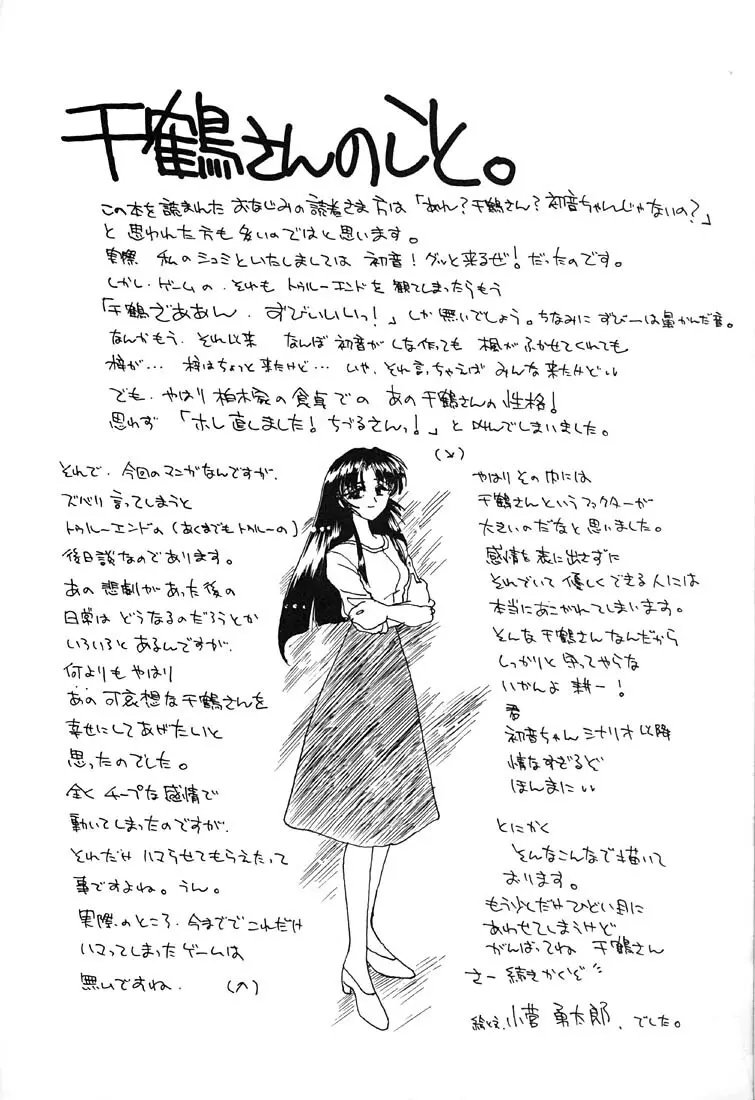 千鶴さんのこと。
この本を読まれた おなじみの読者さま方は「あれ？千鶴さん？初音ちゃんじゃないの？」
と思われた方も多いのではと思います。
実際 私のシュミといたしましては 初音！グッと来るぜ！だったのです。
しかし、ゲームの、それも トゥルーエンドを観てしまったらもう
「千鶴ざああん、ずびいいいっ！」しか無いでしょう。ちなみに ずびーは鼻かんだ音。
なんかもう、それ以来 なんぼ初音がしな作っても 楓がふかせてくれても
梓が… 梓はちょっと来たけど… いや、それ言っちゃえば みんな来たけどい
でも、やはり柏木家の食卓での あの千鶴さんの性格！
思わず 「ホレ直しました！ちづるさんっ！」と叫んでしまいました。
それで、今回のマンガなんですが、
ズベリ言ってしまうと
トゥルーエンドの(あくまでもトゥルーの)
後日談なのであります。
あの悲劇があった後の
日常は どうなるのだろうとか
いろいろと あるんですが、
何よりも やはり
あの可哀想な千鶴さんを
幸せにしてあげたいと
思ったのでした。
全くチープな感情で
動いてしまったのですが、
それだけ ハマらせてもらえたって
事ですよね。うん。
実際のところ、今まででこれだけ
ハマってしまったゲームは
無いですね。
やはりその中には
千鶴さんというファクターが
大きいのだなと思いました。
感情を表に出さずに
それでいて 優しくできる人には
本当にあこがれてしまいます。
そんな千鶴さんなんだから
しっかりと守ってやらな
いかんよ 耕一！
君
初音ちゃんシナリオ以降
情なすぎるど
ほんまにい
とにかく
そんなこんなで描いて
おります。
もう少しだけひどい目に
あわせてしまうけど
がんばってね 千鶴さん
さー続きかくぞ
絵と文、小菅 勇太郎、でした。